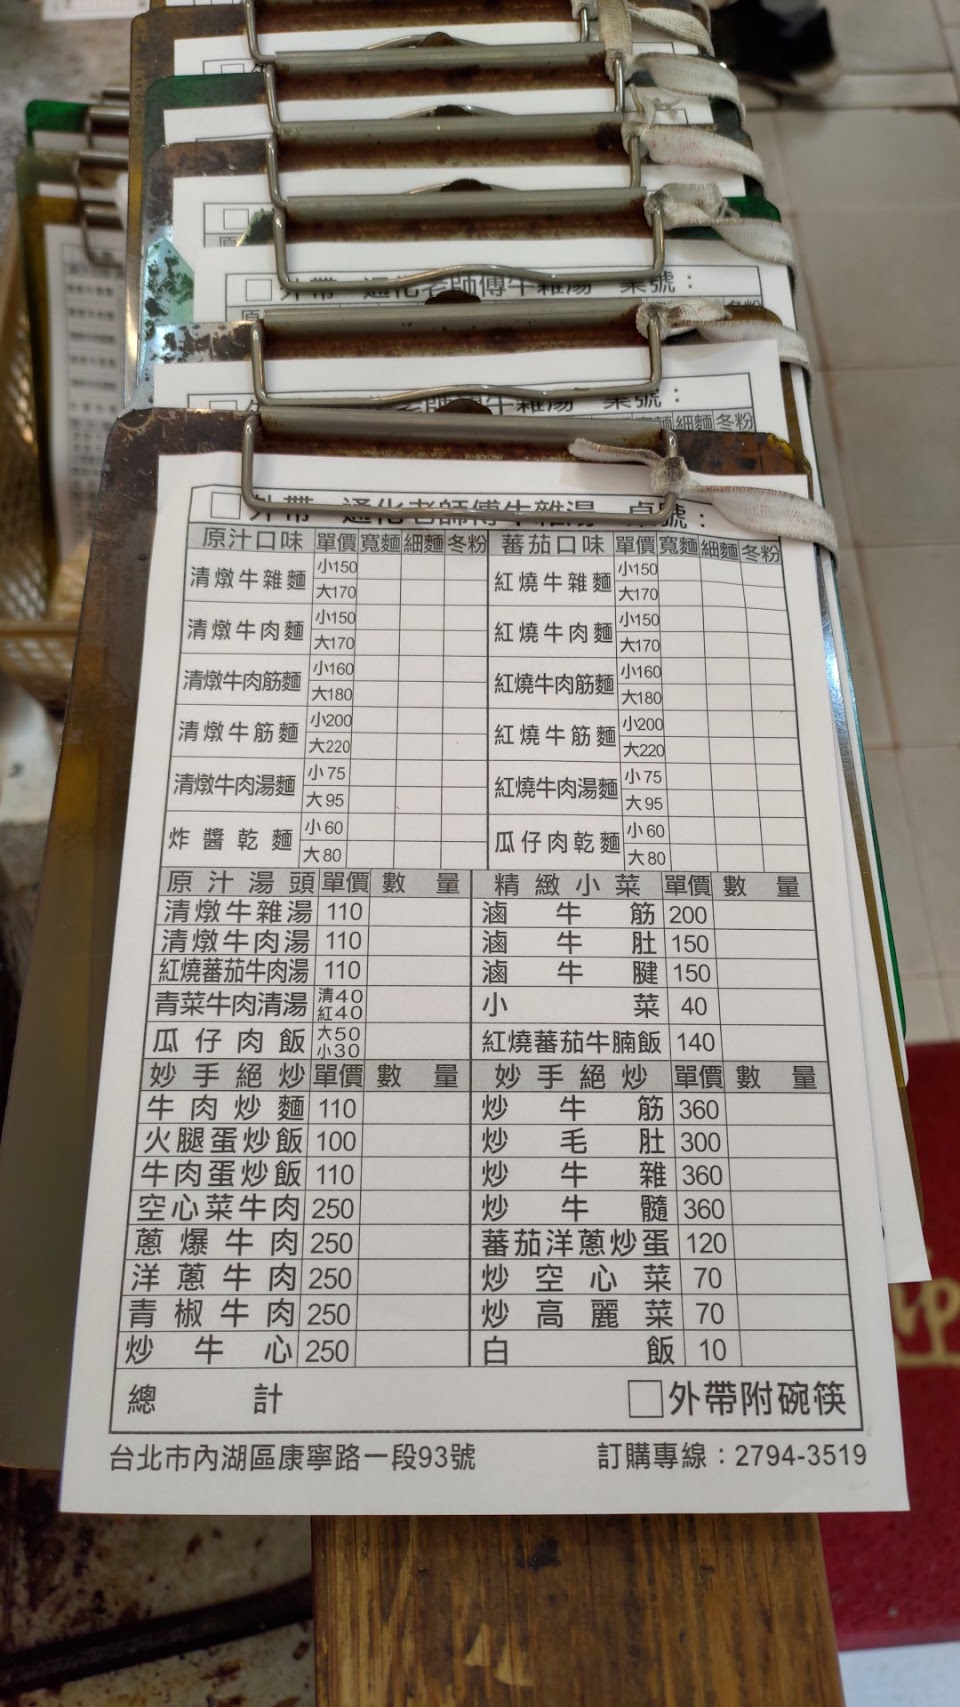 外帶 通化老師傅牛雜湯 桌號：
細麵 冬粉
外帶 通化老師傅牛雜湯 桌號：
原汁口味 單價 寬麵 細麵 冬粉 蕃茄口味 單價 寬麵 細麵 冬粉
清燉牛雜麵 小150 大170 紅燒牛雜麵 小150 大170
清燉牛肉麵 小150 大170 紅燒牛肉麵 小150 大170
清燉牛肉筋麵 小160 大180 紅燒牛肉筋麵 小160 大180
清燉牛筋麵 小200 大220 紅燒牛筋麵 小200 大220
清燉牛肉湯麵 小75 大95 紅燒牛肉湯麵 小75 大95
炸醬乾麵 小60 大80 瓜仔肉乾麵 小60 大80
原汁湯頭 單價 數量 精緻小菜 單價 數量
清燉牛雜湯 110 滷牛筋 200
清燉牛肉湯 110 滷牛肚 150
紅燒蕃茄牛肉湯 110 滷牛腱 150
青菜牛肉清湯 清40 紅40 小菜 40
瓜仔肉飯 大50 小30 紅燒蕃茄牛腩飯 140
妙手絕炒 單價 數量 妙手絕炒 單價 數量
牛肉炒麵 110 炒牛筋 360
火腿蛋炒飯 100 炒毛肚 300
牛肉蛋炒飯 110 炒牛雜 360
空心菜牛肉 250 炒牛髓 360
蔥爆牛肉 250 蕃茄洋蔥炒蛋 120
洋蔥牛肉 250 炒空心菜 70
青椒牛肉 250 炒高麗菜 70
炒牛心 250 白飯 10
總計 外帶附碗筷
台北市內湖區康寧路一段93號 訂購專線：2794-3519